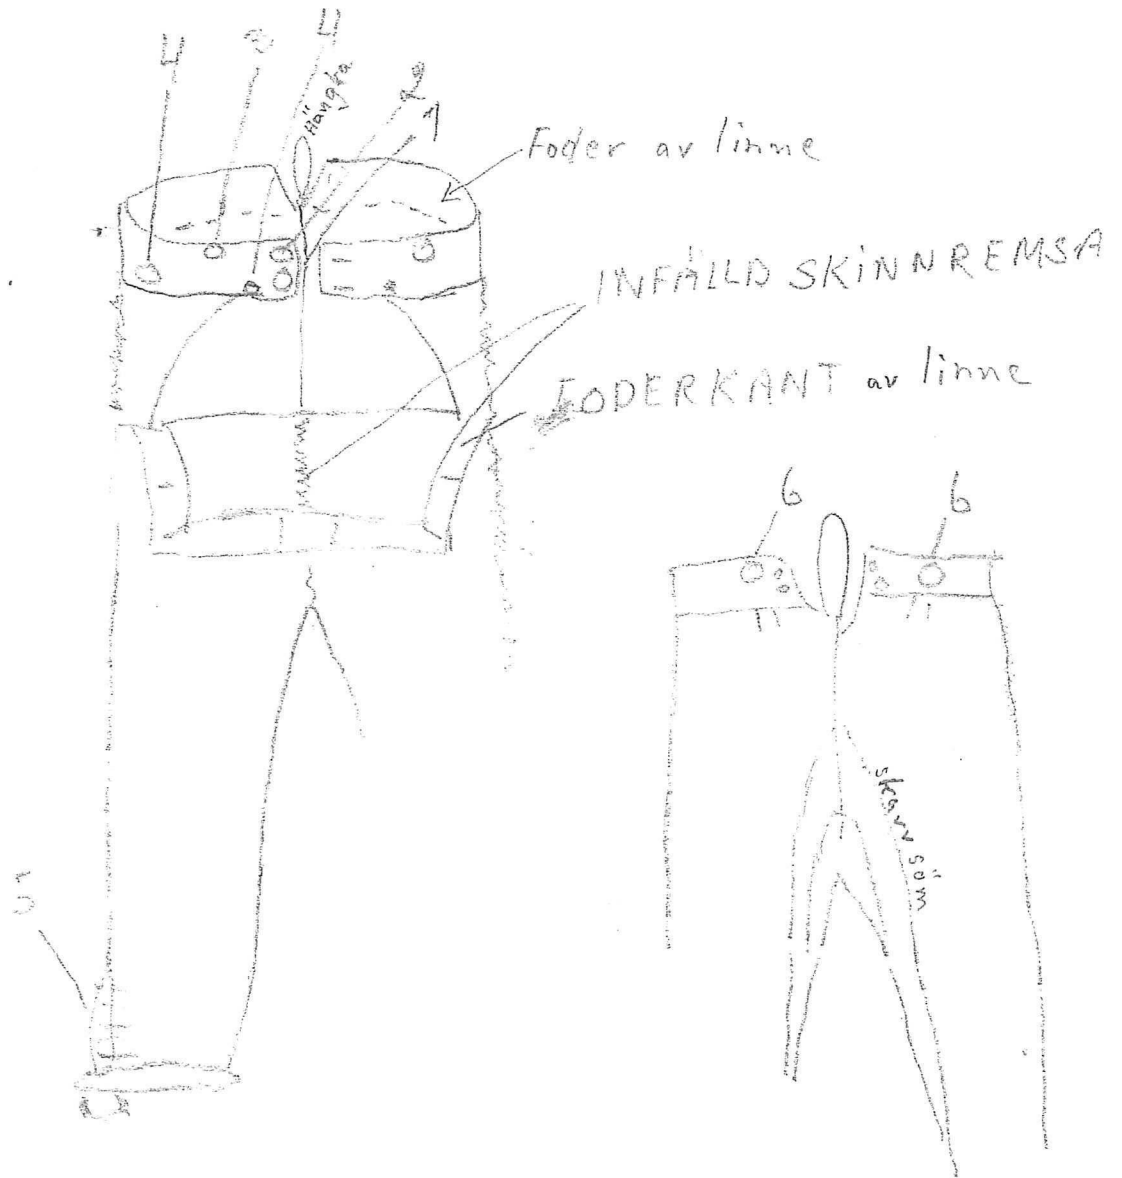 4
3
4
Hängra
2
1
Foder av linne
INFÄLLD SKINNREMSA
FODERKANT av linne
6
6
skarv söm
5